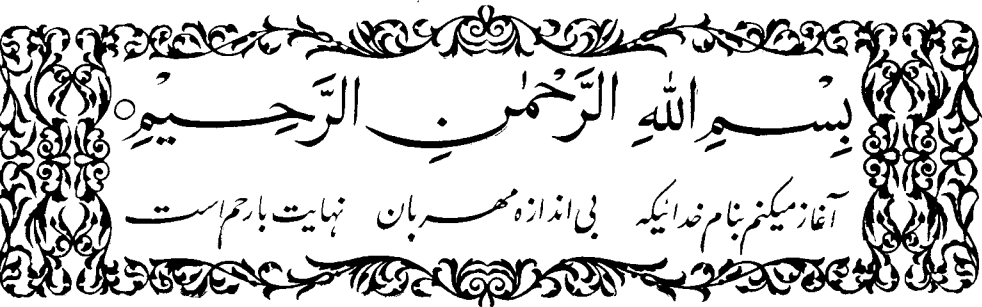 بِسْمِ اللّٰهِ الرَّحْمٰنِ الرَّحِيْمِ ○
آغاز میکنم بنام خدائیکه بی اندازه مهربان نهایت بارحم است